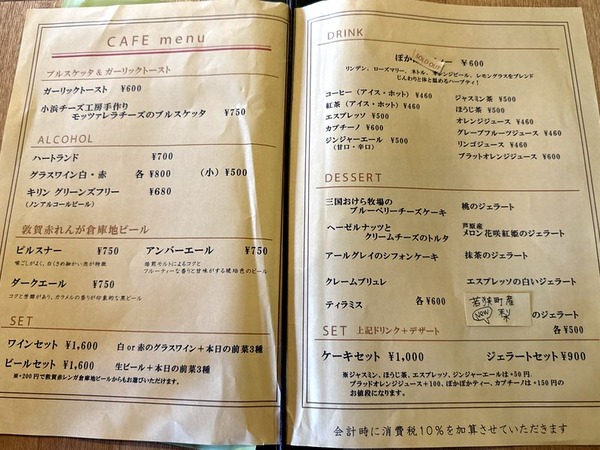 CAFE menu
ブルスケッタ & ガーリックトースト
ガーリックトースト ¥600
小浜チーズ工房手作り
モッツァレラチーズのブルスケッタ ¥750
ALCOHOL
ハートランド ¥700
グラスワイン白・赤 各¥800 (小)¥500
キリン グリーンズフリー ¥680
(ノンアルコールビール)
敦賀赤れんが倉庫地ビール
ピルスナー ¥750 アンバーエール ¥750
喉ごしがよく、白くきめ細かい泡が特徴
焙煎モルトによるコクと
フルーティーな香りと甘味がする琥珀色のビール
ダークエール ¥750
コクと苦味があり、カラメルの香りが印象的な黒ビール
SET
ワインセット ¥1,600 白 or 赤のグラスワイン+本日の前菜3種
ビールセット ¥1,600 生ビール+本日の前菜3種
※+200円で敦賀赤レンガ倉庫地ビールからもお選びいただけます。
DRINK
SOLD OUT
ぽか ¥600
リンデン、ローズマリー、ネトル、オレンジピール、レモングラスをブレンド
じんわりと体と温めるハーブティ!
コーヒー(アイス・ホット) ¥460
紅茶(アイス・ホット) ¥460
エスプレッソ ¥500
カプチーノ ¥600
ジンジャーエール ¥500
(甘口・辛口)
ジャスミン茶 ¥500
ほうじ茶 ¥500
オレンジジュース ¥460
グレープフルーツジュース ¥460
リンゴジュース ¥460
ブラットオレンジジュース ¥600
DESSERT
三国おけら牧場の
ブルーベリーチーズケーキ
ヘーゼルナッツと
クリームチーズのトルタ
アールグレイのシフォンケーキ
クレームブリュレ
ティラミス
各¥600
桃のジェラート
芦原産
メロン花咲紅姫のジェラート
抹茶のジェラート
エスプレッソの白いジェラート
若狭町産
NEW 梨
のジェラート
各¥500
SET 上記ドリンク+デザート
ケーキセット ¥1,000 ジェラートセット¥900
※ジャスミン、ほうじ茶、エスプレッソ、ジンジャーエールは+50円.
ブラッドオレンジジュース+100、ぽかぽかティー、カプチーノは+150円の
お値段になります。
会計時に消費税10%を加算させていただきます